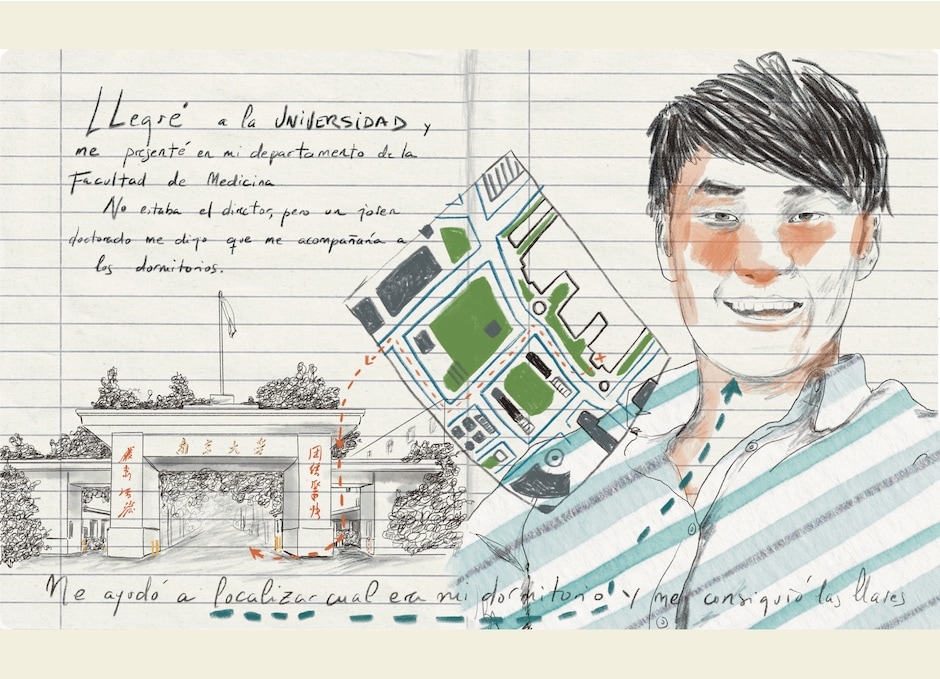 LLegué a la UNIVERSIDAD y
me presenté en mi departamento de la
Facultad de Medicina
No estaba el director, pero un joven
doctorado me digo que me acompañaría a
los dormitorios.
南京大学
Me ayudó a localizar cual era mi dormitorio y me consiguió las llaves